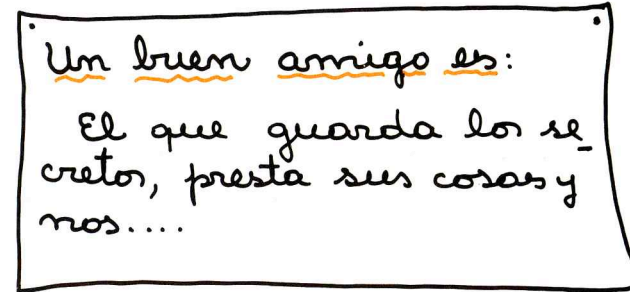 Un buen amigo es:
El que guarda los se_
cretos, presta sus cosas y
nos....